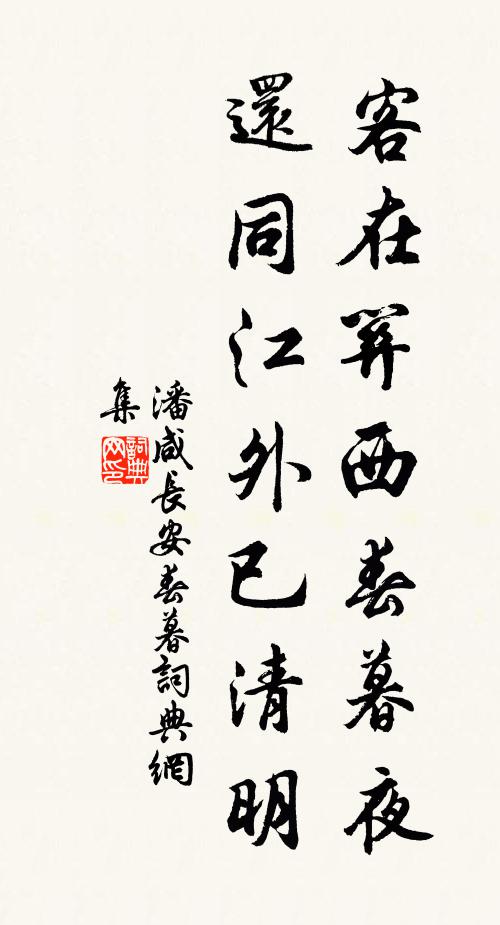 客在關西春暮夜
還同江外已清明
潘咸長安春暮詞典網
集
詞典
網印